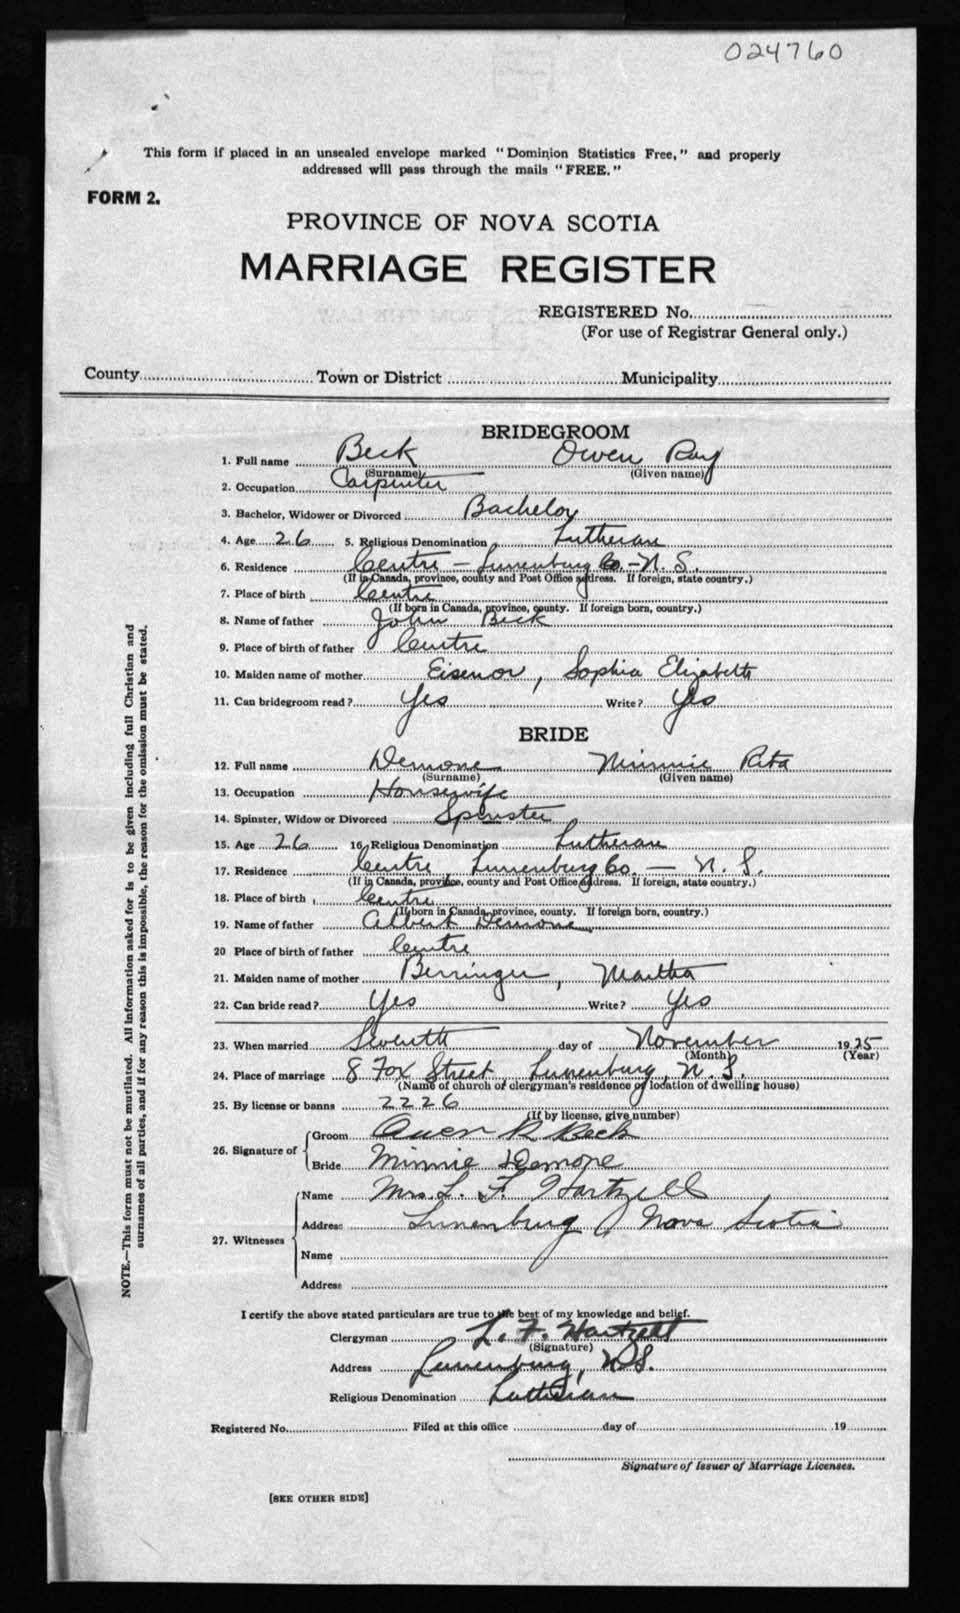 024760
This form if placed in an unsealed envelope marked "Dominion Statistics Free," and properly
addressed will pass through the mails "FREE."
FORM 2.
PROVINCE OF NOVA SCOTIA
MARRIAGE REGISTER
REGISTERED No.
(For use of Registrar General only.)
County Town or District Municipality
BRIDEGROOM
1. Full name Beck Owen Ray
(Surname) (Given name)
2. Occupation Carpenter
3. Bachelor, Widower or Divorced Bachelor
4. Age 26 5. Religious Denomination Lutheran
6. Residence Centre - Lunenburg Co. - N. S.
(If in Canada, province, county and Post Office address. If foreign, state country.)
7. Place of birth Centre
(If born in Canada, province, county. If foreign born, country.)
8. Name of father John Beck
9. Place of birth of father Centre
10. Maiden name of mother Eisenor, Sophia Elizabeth
11. Can bridegroom read? Yes Write? Yes
BRIDE
12. Full name Demone Minnie Rita
(Surname) (Given name)
13. Occupation Housewife
14. Spinster, Widow or Divorced Spinster
15. Age 26 16. Religious Denomination Lutheran
17. Residence Centre, Lunenburg Co. - N. S.
(If in Canada, province, county and Post Office address. If foreign, state country.)
18. Place of birth Centre
(If born in Canada, province, county. If foreign born, country.)
19. Name of father Albert Demone
20 Place of birth of father Centre
21. Maiden name of mother Berringer, Martha
22. Can bride read? Yes Write? Yes
23. When married Seventh day of November 1925
(Month) (Year)
24. Place of marriage 8 Fox Street Lunenburg, N. S.
(Name of church or clergyman's residence or location of dwelling house)
25. By license or banns 2226
(If by license, give number)
26. Signature of Groom Owen R Beck
Bride Minnie Demone
27. Witnesses Name Mrs. L. F. Hartzell
Address Lunenburg, Nova Scotia
Name
Address
I certify the above stated particulars are true to the best of my knowledge and belief.
Clergyman L. F. Hartzell
(Signature)
Address Lunenburg, N.S.
Religious Denomination Lutheran
Registered No. Filed at this office day of 19
Signature of Issuer of Marriage Licenses.
[SEE OTHER SIDE]
NOTE.—This form must not be mutilated. All information asked for is to be given including full Christian and
surnames of all parties, and if for any reason this is impossible, the reason for the omission must be stated.